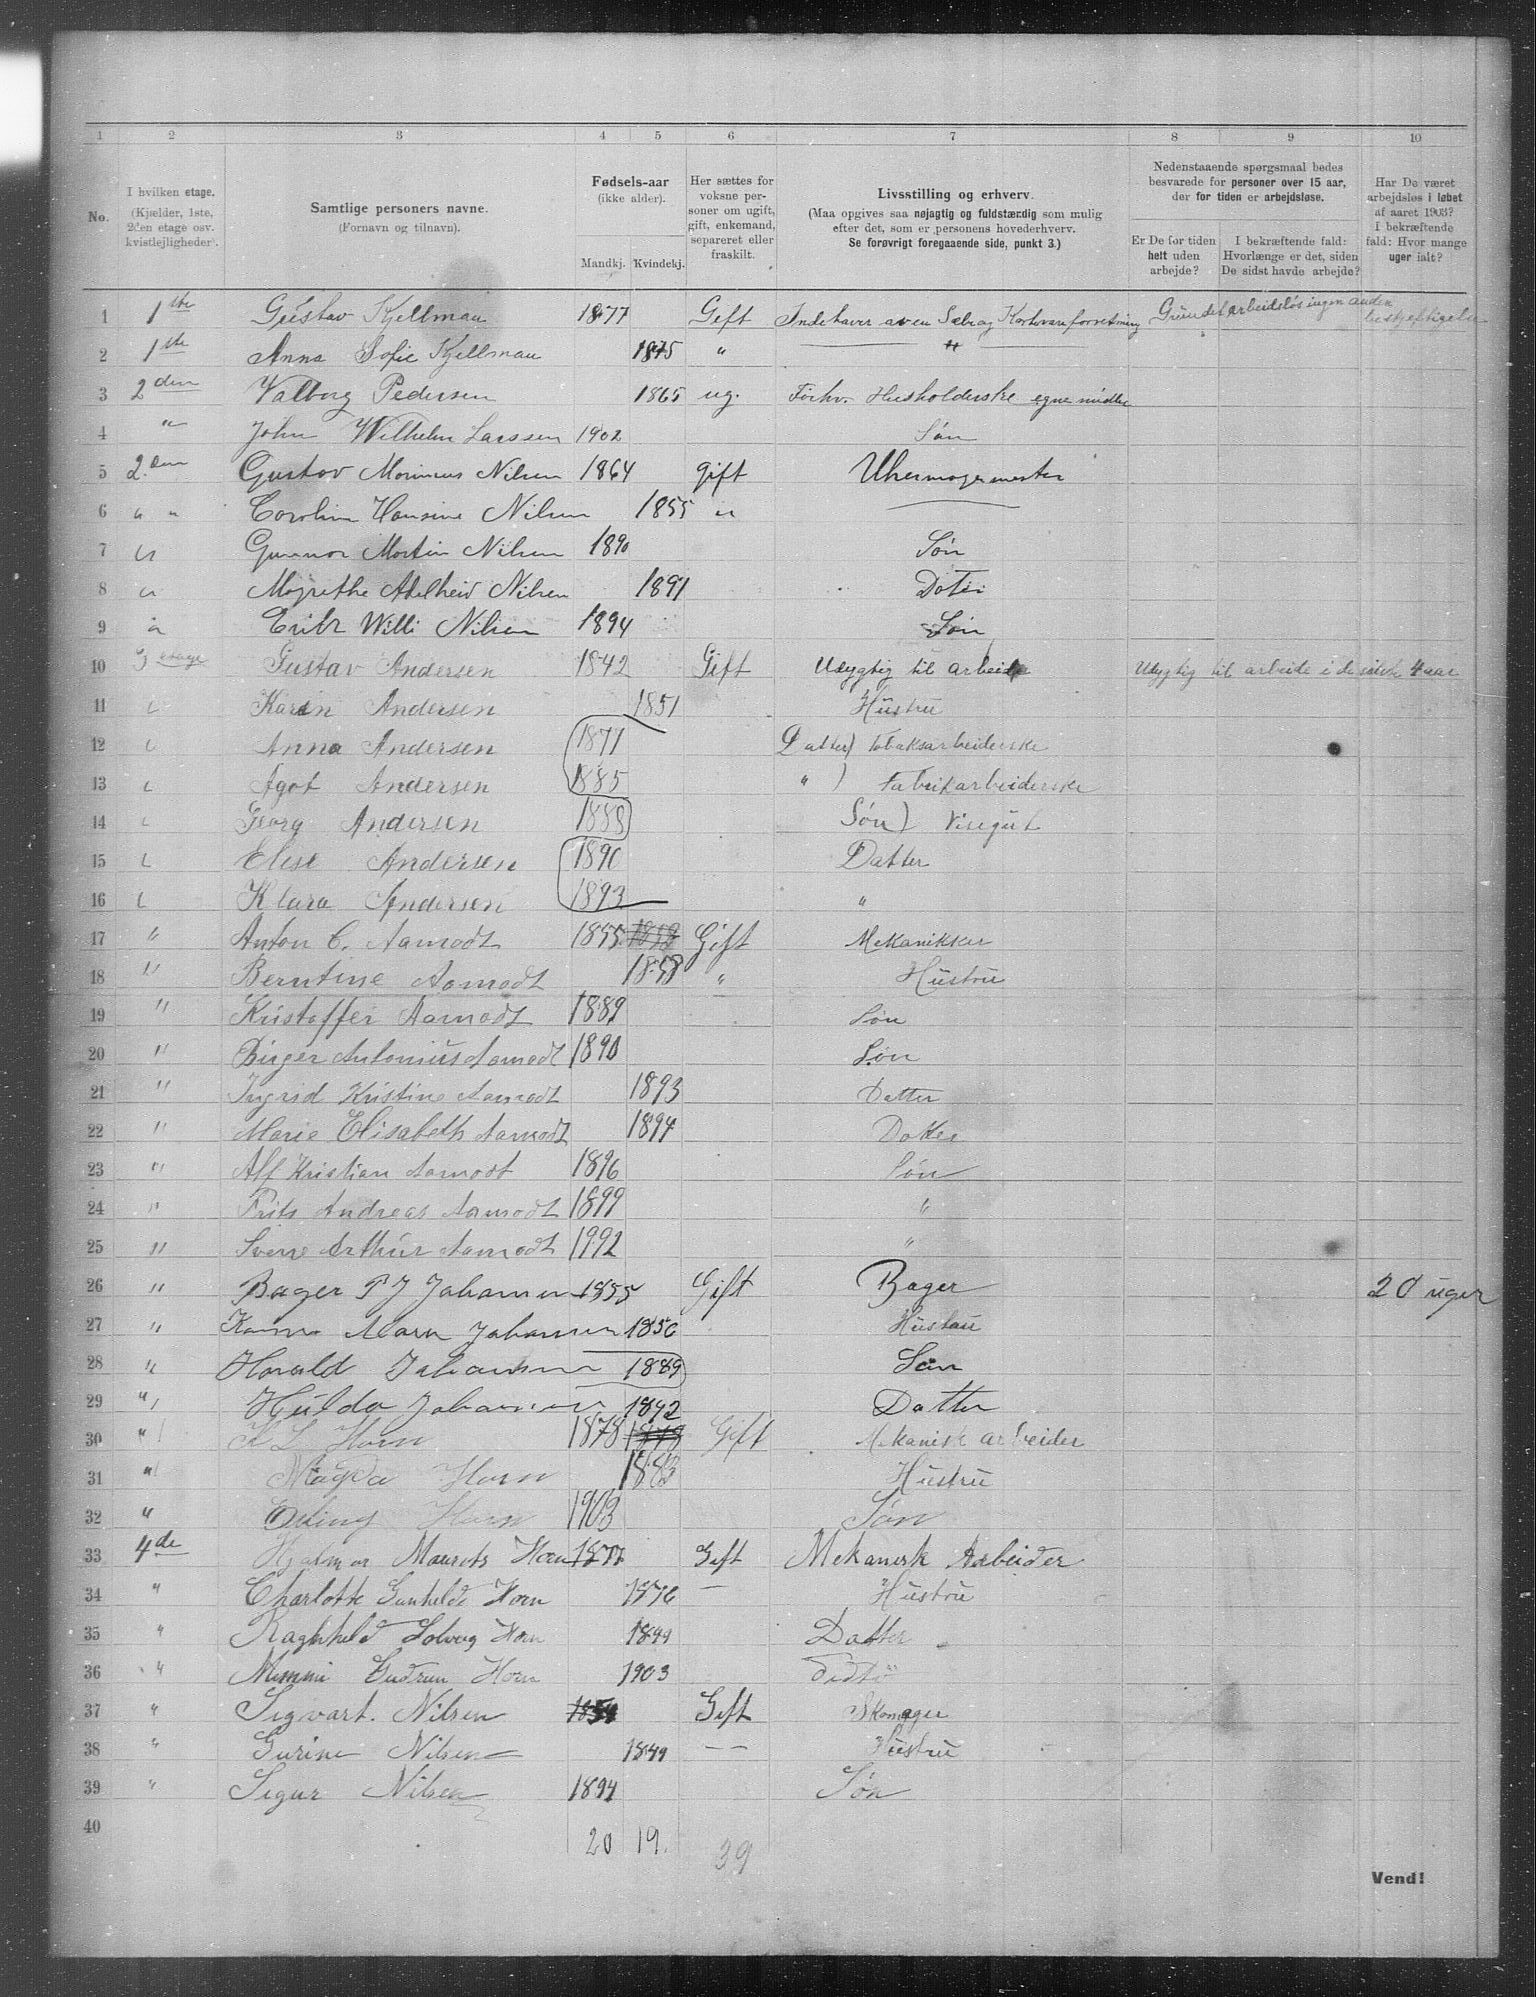 1 2 3 4 5 6 7 8 9 10
No.
I hvilken etage.
(Kjælder, 1ste,
2den etage osv.
kvistlejligheder).
Samtlige personers navne.
(Fornavn og tilnavn).
Fødsels-aar
(ikke alder).
Mandkj. Kvindekj.
Her sættes for
voksne per-
soner om ugift,
gift, enkemand,
separeret eller
fraskilt.
Livsstilling og erhverv.
(Maa opgives saa nøjagtig og fuldstærdig som mulig
efter det, som er personens hovederhverv.
Se forøvrigt foregaaende side, punkt 3.)
Nedenstaaende spørgsmaal bedes
besvarede for personer over 15 aar,
der for tiden er arbejdsløse.
Er De for tiden
helt uden
arbejde?
I bekræftende fald:
Hvorlænge er det, siden
De sidst havde arbejde?
Har De været
arbejdsløs i løbet
af aaret 1903?
I bekræftende
fald: Hvor mange
uger ialt?
1 1ste Gustav Kjellman 1877 Gift Indehaver av en forretning arbeidsløs ingen anden beskjeftigelse
2 1ste Anna Sofie Kjellman 1875 "
3 2den Valborg Pedersen 1865 ug. Forhv. Husholderske egne midler
4 " John Wilhelm Larssen 1902 Søn
5 2.den Gustav Marinius Nilsen 1864 gift Uhrmagermester
6 " " Carolina Hansine Nilsen 1855 "
7 " Gunnar Martin Nilsen 1890 Søn
8 " Magrethe Adelheid Nilsen 1891 Dater
9 " Erik Willi Nilsen 1894 Søn
10 3 etage Gustav Andersen 1842 Gift Udygtig til arbeide Udygtig til arbeide i de sidste 4 aar
11 " Karen Andersen 1851 Hustru
12 " Anna Andersen 1871 Datter) tobaksarbeiderske
13 " Agot Andersen 1885 " ) Fabrikarbeiderske
14 " Georg Andersen 1888 Søn) Visegut
15 " Elise Andersen 1890 Datter
16 " Klara Andersen 1893 "
17 " Anton C. Aamodt 1855 Gift Mekanikker
18 " Berntine Aamodt 1858 " Hustru
19 " Kristoffer Aamodt 1889 Søn
20 " Birger Antonius Aamodt 1890 Søn
21 " Ingrid Kristine Aamodt 1893 Datter
22 " Marie Elisabeth Aamodt 1894 Datter
23 " Alf Kristian Aamodt 1896 Søn
24 " Frits Andreas Aamodt 1899 "
25 " Sverre Arthur Aamodt 1992 "
26 " Bager P J Johansen 1855 Gift Bager 20 uger
27 " Marn Johansen 1856 Hustru
28 " Harald Johansen 1889 Søn
29 " Hulda Johansen 1892 Datter
30 " K L Horn 1878 Gift Mekanisk arbeider
31 " Magda Horn 1883 Hustru
32 " Erling Horn 1903 Søn
33 4de Hjalmar Maurits Horn 1877 Gift Mekanisk Arbeider
34 " Charlotte Gunhild Horn 1876 — Hustru
35 " Raghhild Solveig Horn 1899 Datter
36 " Mimmi Gudrun Horn 1903 Didto
37 " Sigvart. Nilsen 1854 Gift Skomager
38 " Gurine Nilsen 1849 — — Hustru
39 " Sigur Nilsen 1894 Søn
40
20 19. 39
Vend!